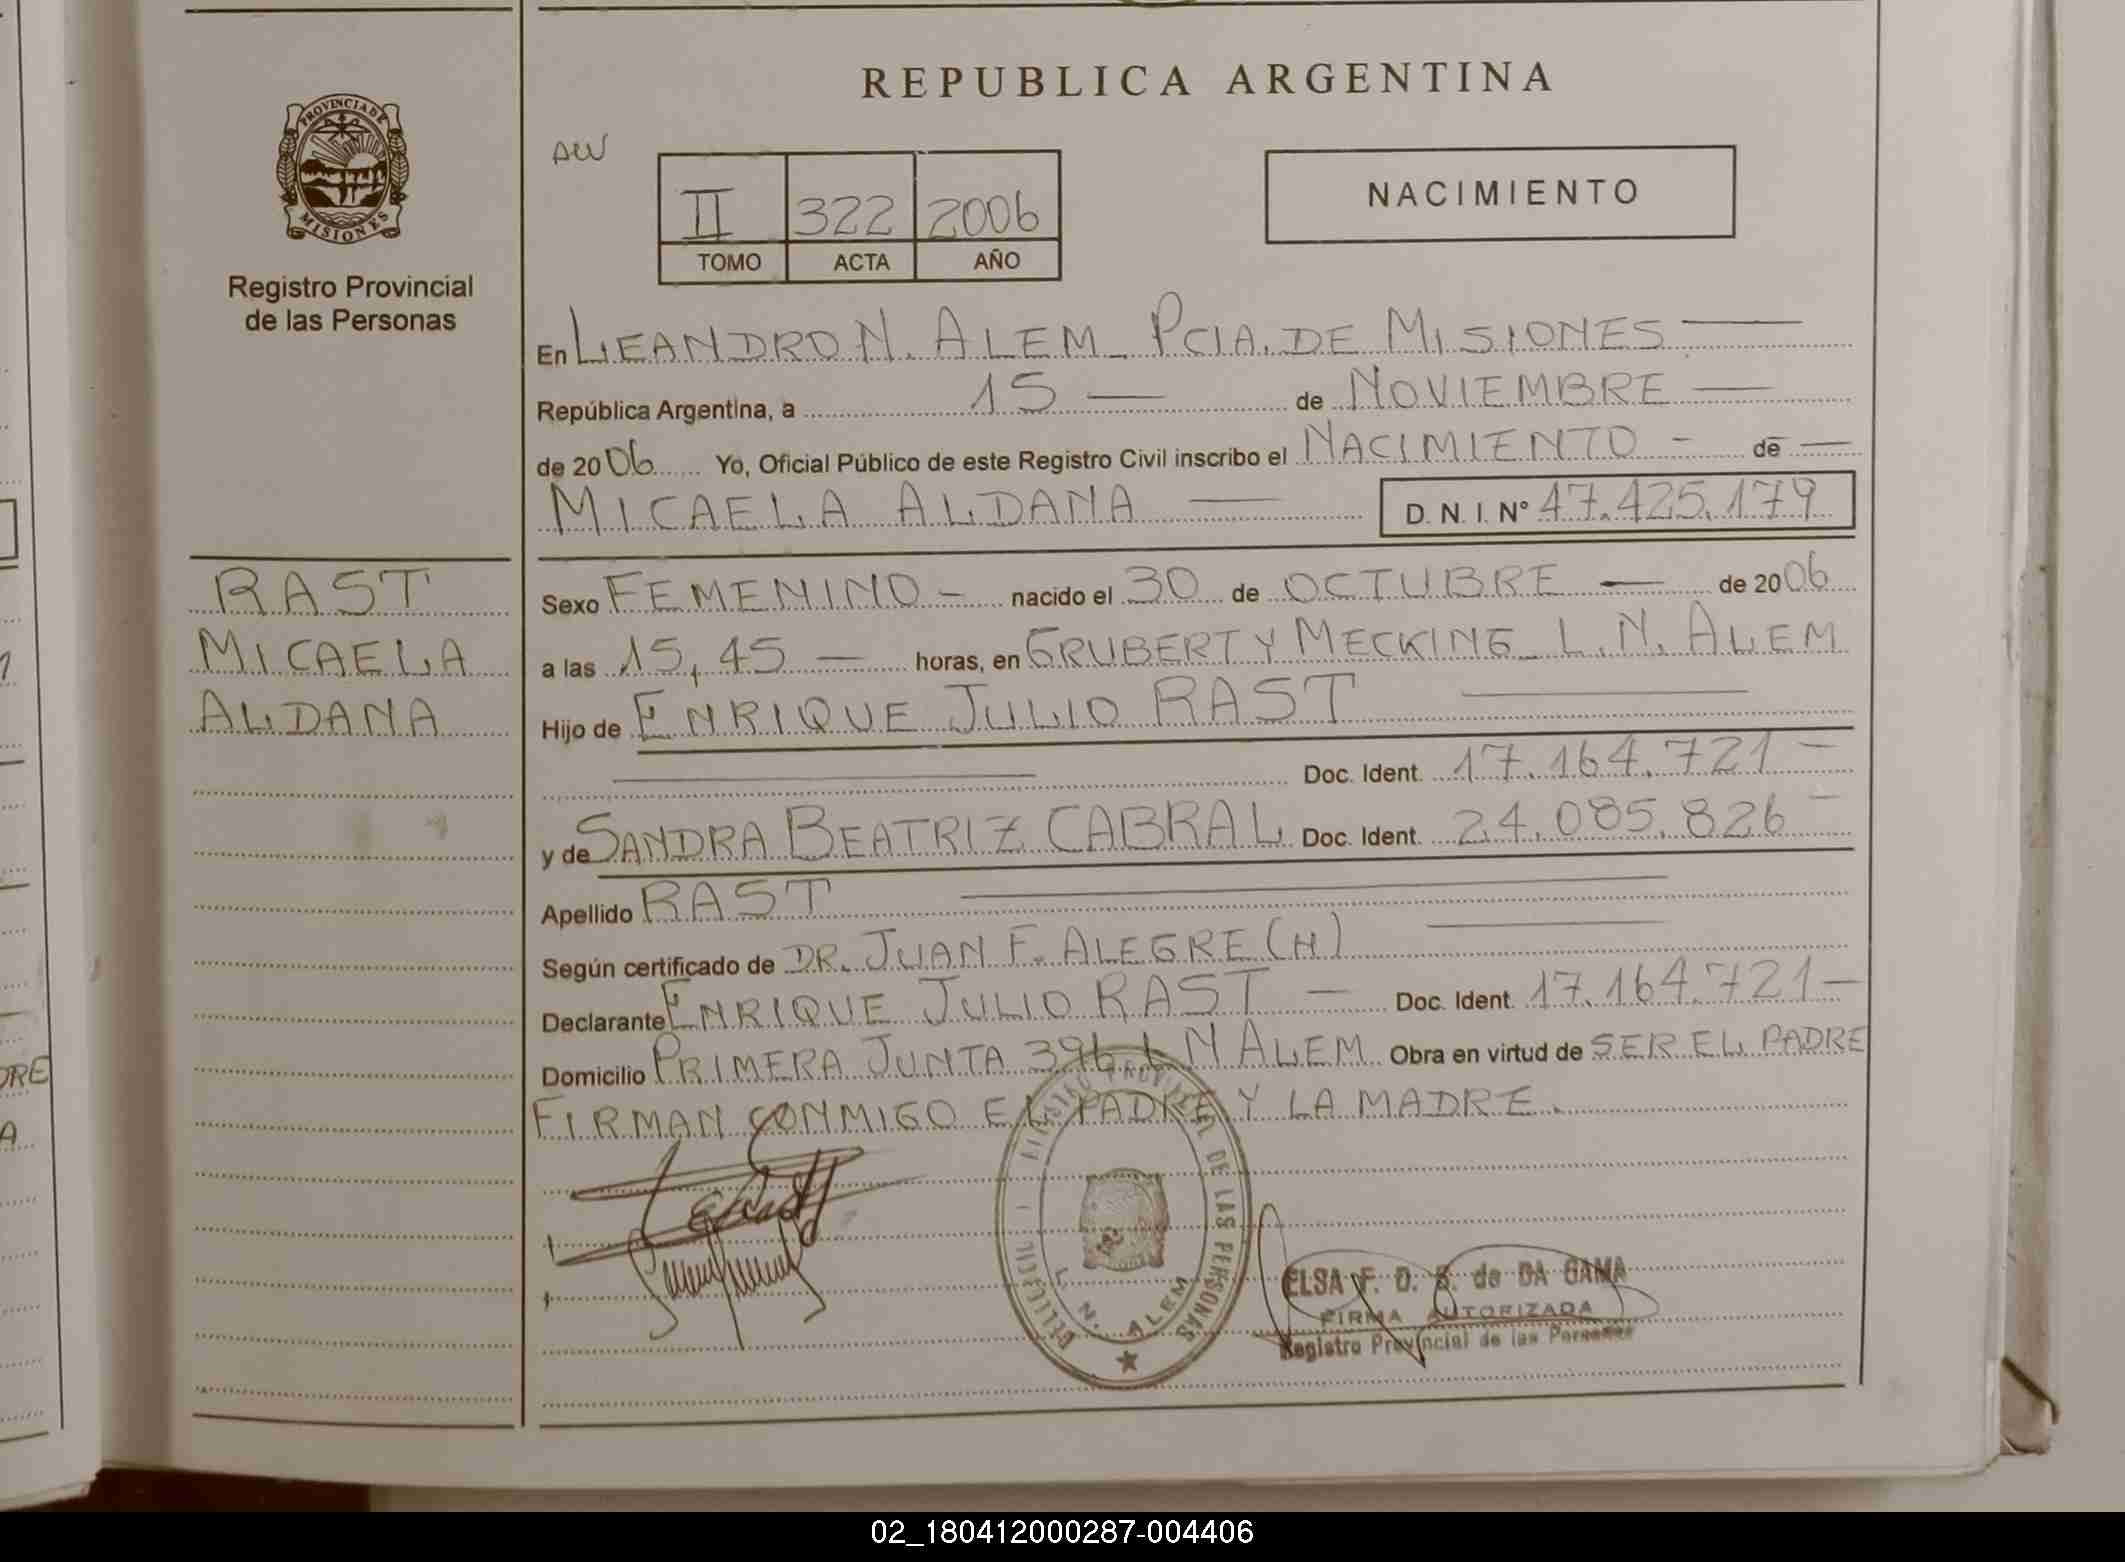 REPUBLICA ARGENTINA
PROVINCIA DE MISIONES
Registro Provincial
de las Personas
AW
II 322 2006
TOMO ACTA AÑO
NACIMIENTO
En LEANDRO N. ALEM PCIA. DE MISIONES
República Argentina, a 15 de NOVIEMBRE
de 2006 Yo, Oficial Público de este Registro Civil inscribo el NACIMIENTO de
MICAELA ALDANA D. N. I. Nº 47.425.179
RAST
MICAELA
ALDANA
Sexo FEMENINO nacido el 30 de OCTUBRE de 2006
a las 15,45 horas, en GRUBERT Y MECKING L. N. ALEM
Hijo de ENRIQUE JULIO RAST
Doc. Ident. 17.164.721
y de SANDRA BEATRIZ CABRAL Doc. Ident. 24.085.826
Apellido RAST
Según certificado de DR. JUAN F. ALEGRE (H)
Declarante ENRIQUE JULIO RAST Doc. Ident. 17.164.721
Domicilio PRIMERA JUNTA 396 L N ALEM Obra en virtud de SER EL PADRE
FIRMAN CONMIGO EL PADRE Y LA MADRE.
REGISTRO PROVINCIAL DE LAS PERSONAS
L. N. ALEM
ELSA F. D. S. de DA GAMA
FIRMA AUTORIZADA
Registro Provincial de las Personas
02_180412000287-004406